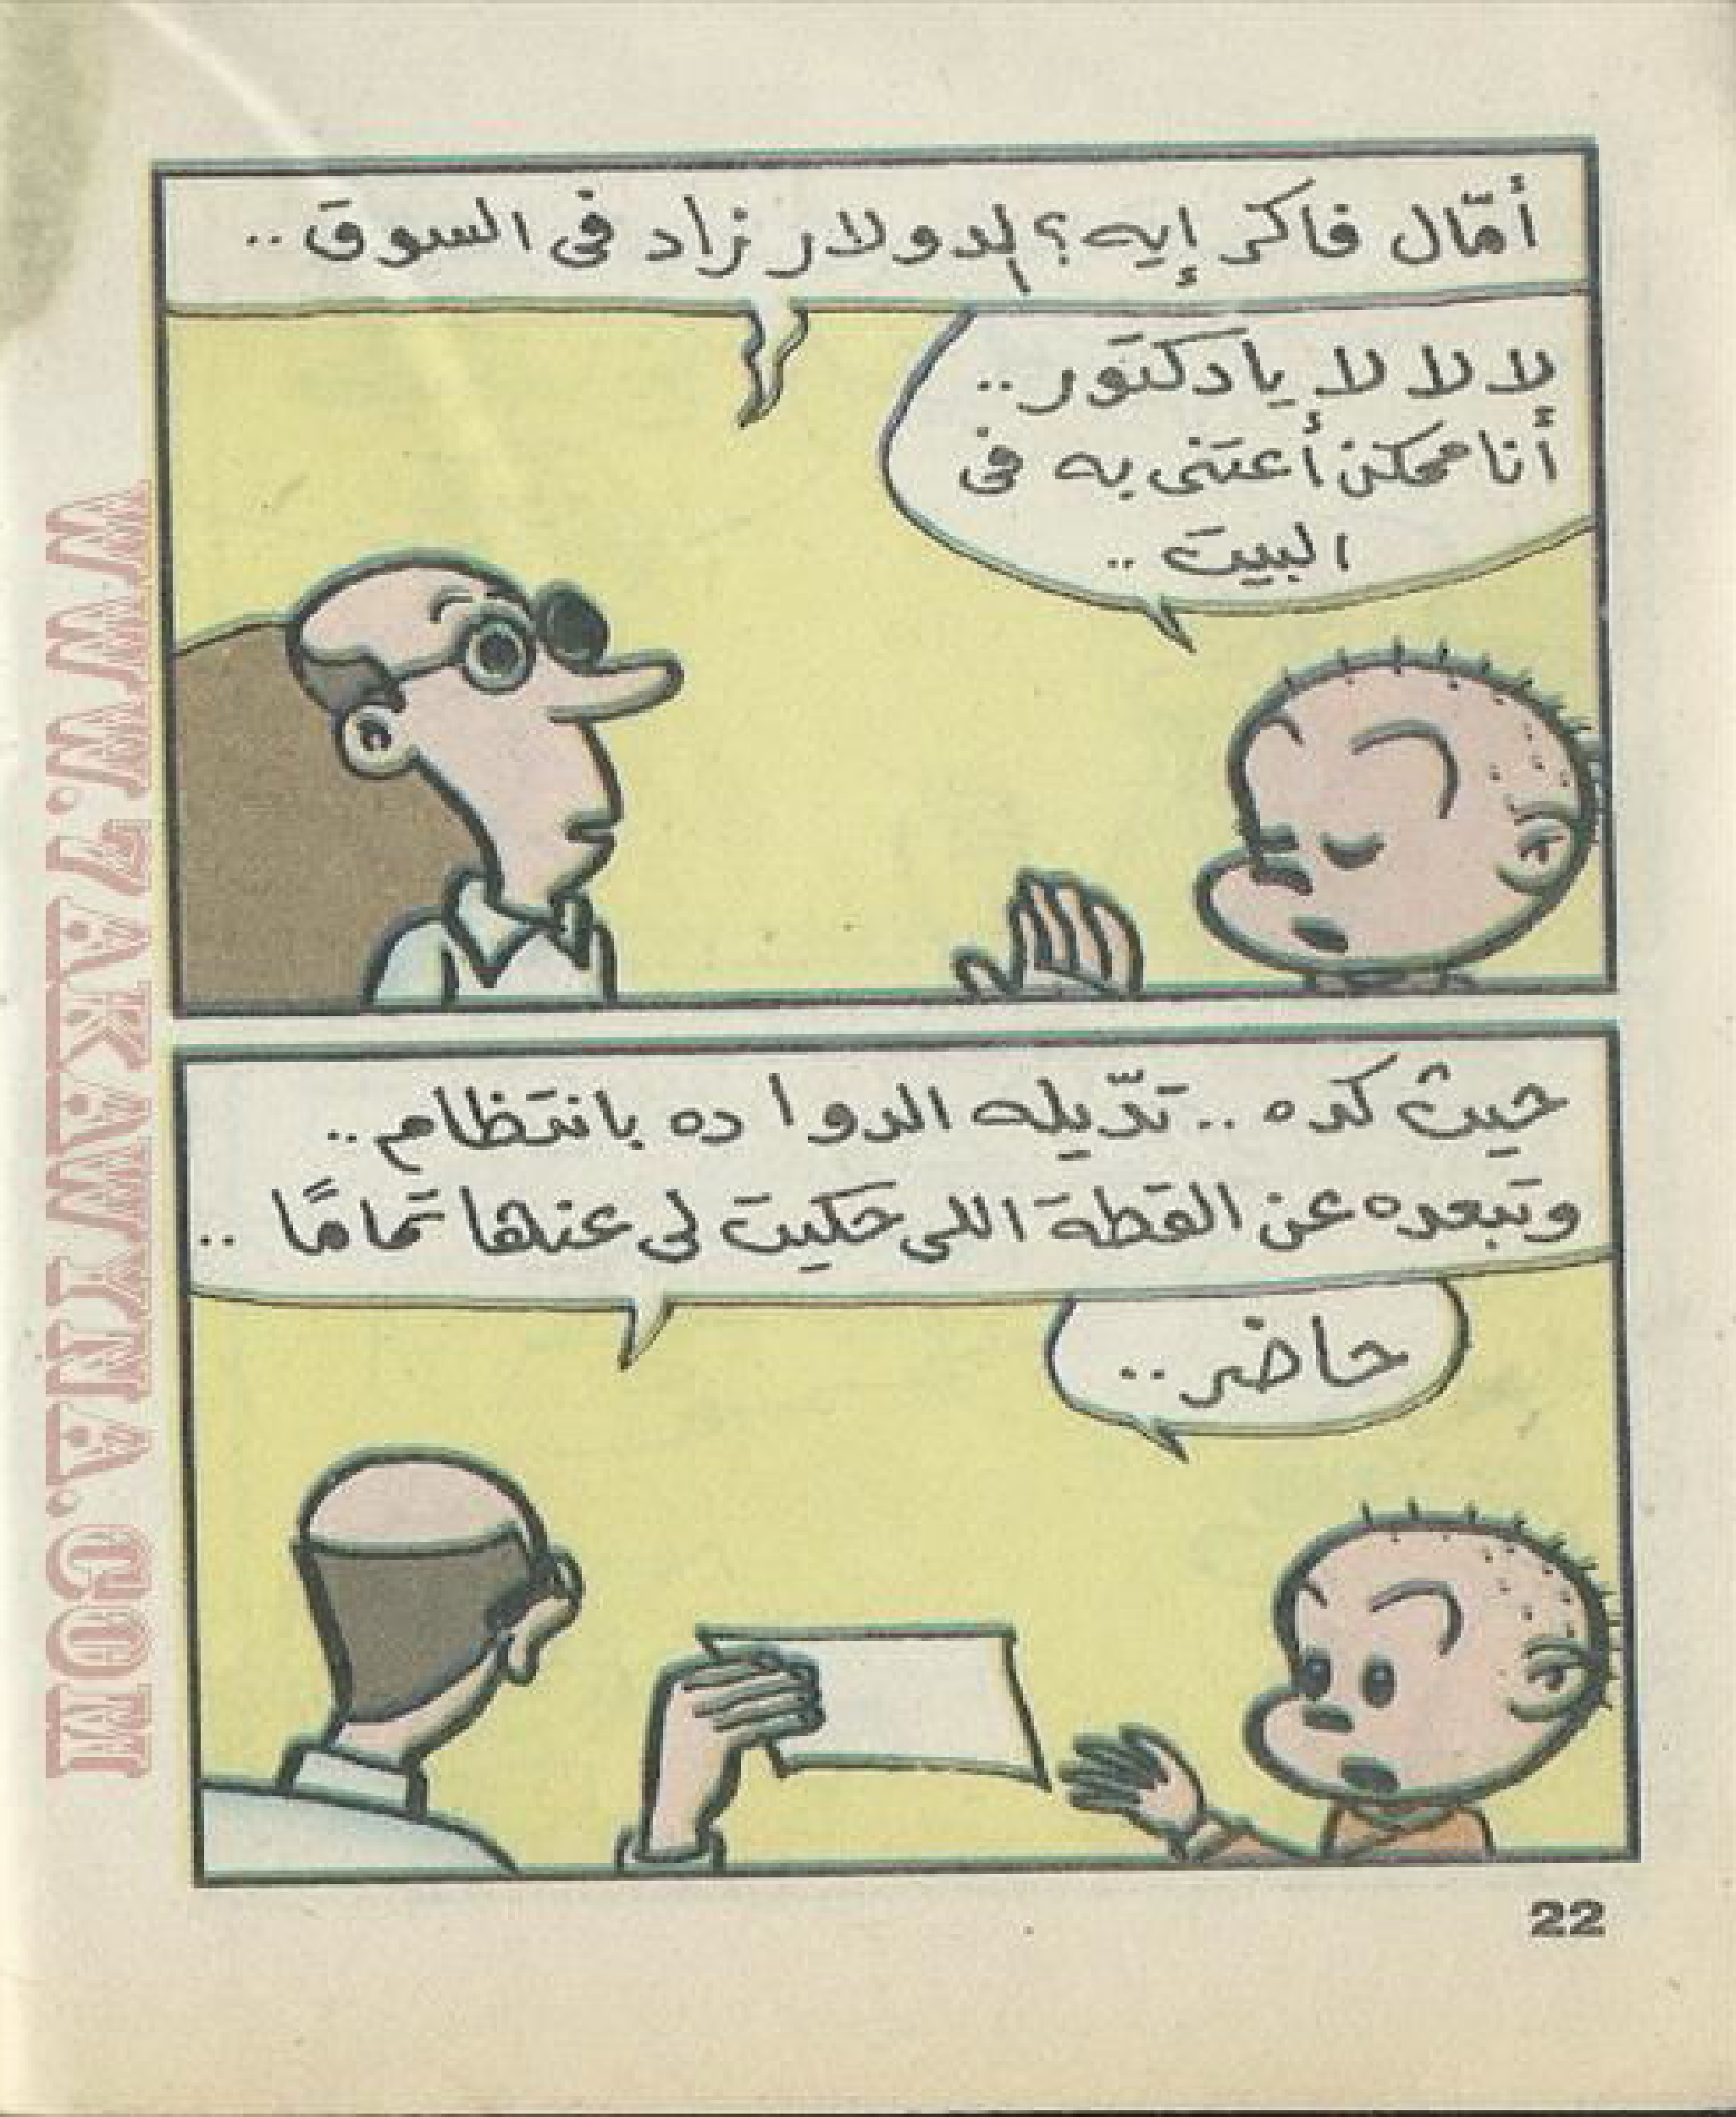 أمّال فاكر إيه؟ الدولار زاد فى السوق..
لا لا لا يا دكتور..
أنا ممكن أعتنى به فى
البيت..
حيث كده.. تدّيله الدوا ده بانتظام..
وتبعده عن القطة اللى حكيت لى عنها تمامًا..
حاضر..
22
WWW.7AKAWITNA.COM